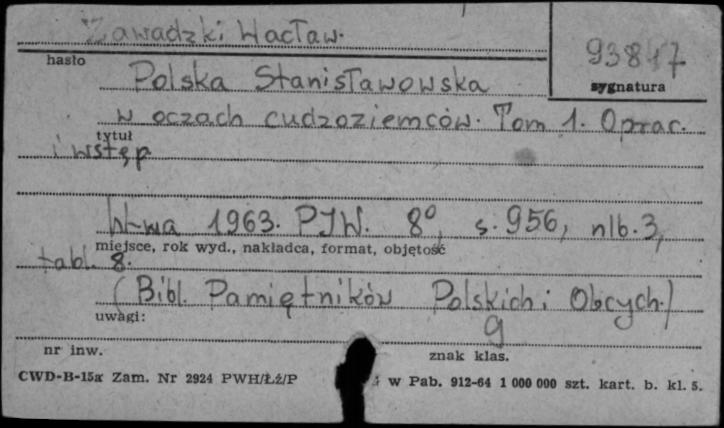 Zawadzki Wacław.
93847
hasło
sygnatura
Polska Stanisławowska
w oczach cudzoziemców. Tom 1. Oprac.
tytuł
i wstęp
W-wa 1963. PIW. 8°, s. 956, nlb. 3,
miejsce, rok wyd., nakładca, format, objętość
tabl. 8.
(Bibl. Pamiętników Polskich i Obcych.)
uwagi:
9
nr inw.
znak klas.
CWD-B-15a Zam. Nr 2924 PWH/Łź/P w Pab. 912-64 1 000 000 szt. kart. b. kl. 5.